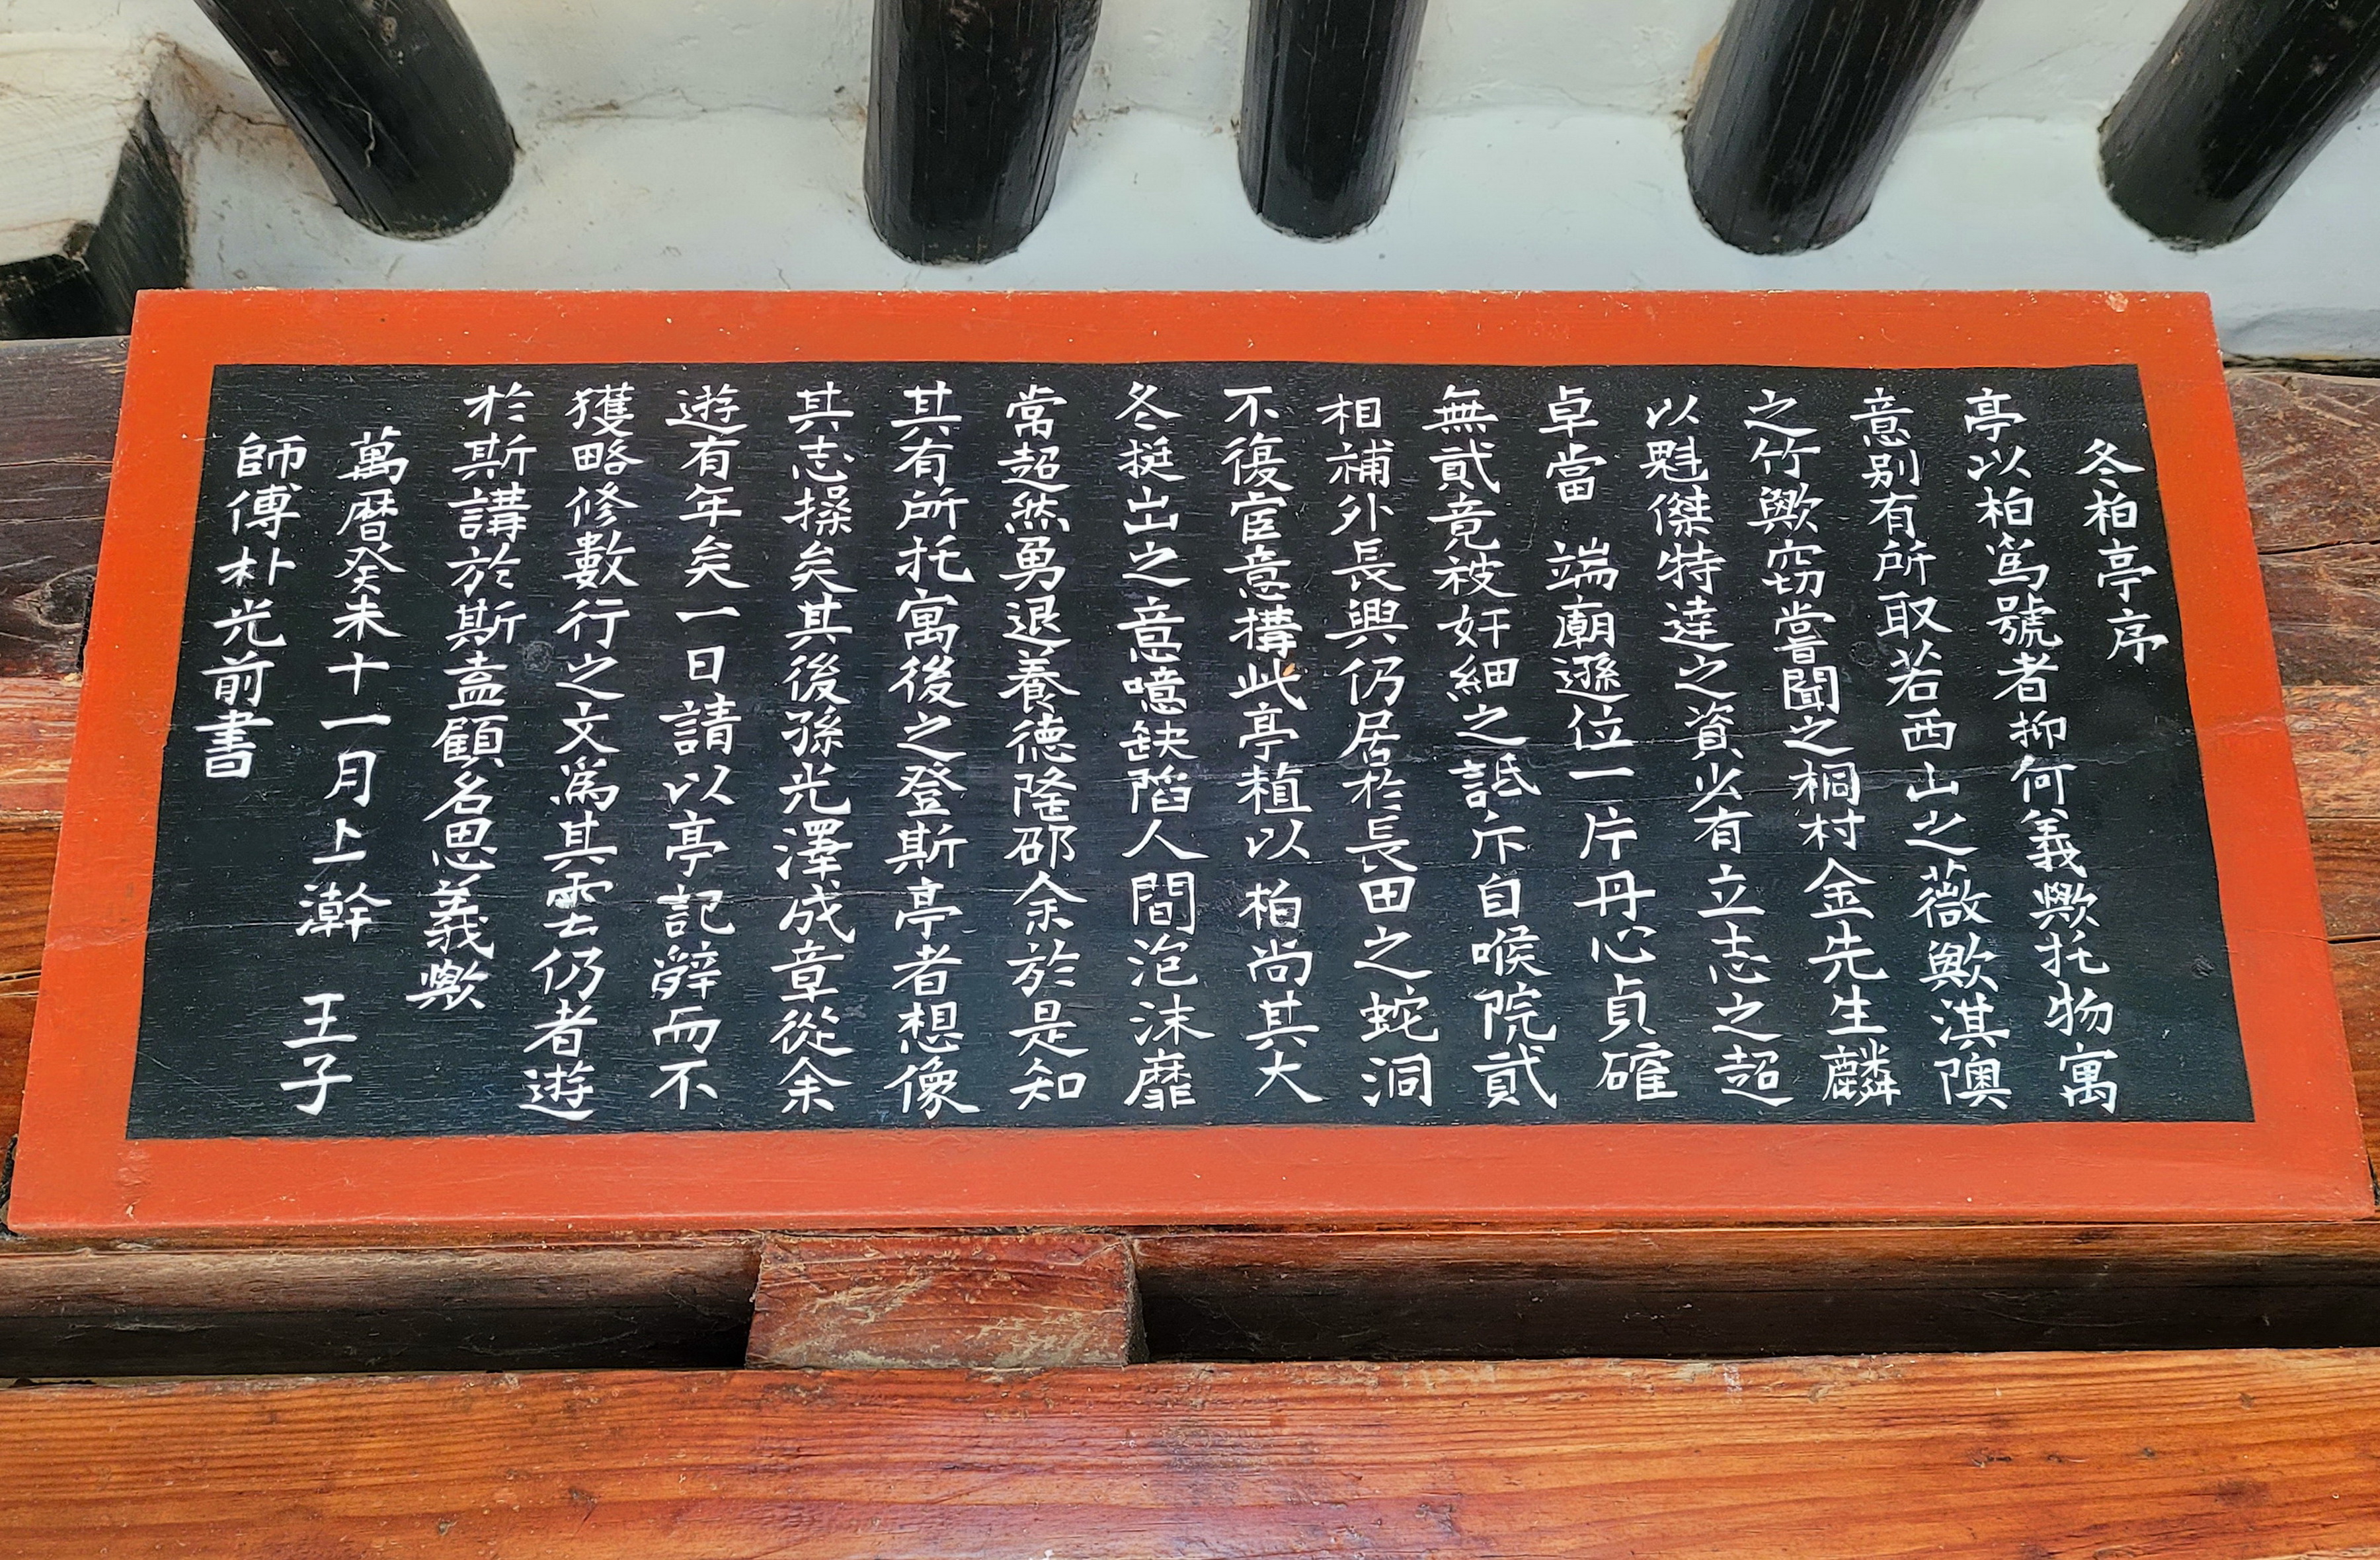 冬柏亭序
亭以柏爲號者抑何義歟托物寓
意別有所取若西山之薇歟淇隩
之竹歟窃嘗聞之桐村金先生麟
以魁傑特達之資少有立志之超
卓當 端廟遜位一片丹心貞確
無貳竟被奸細之詆斥自喉院貳
相補外長興仍居於長田之蛇洞
不復宦意構此亭植以柏尚其大
冬挺出之意噫缺陷人間泡沫靡
常超然勇退養德隆邵余於是知
其有所托寓後之登斯亭者想像
其志操矣其後孫光澤成章從余
遊有年矣一日請以亭記辭而不
獲略修數行之文爲其云仍者遊
於斯講於斯盍顧名思義歟
萬曆癸未十一月上澣 王子
師傅朴光前書